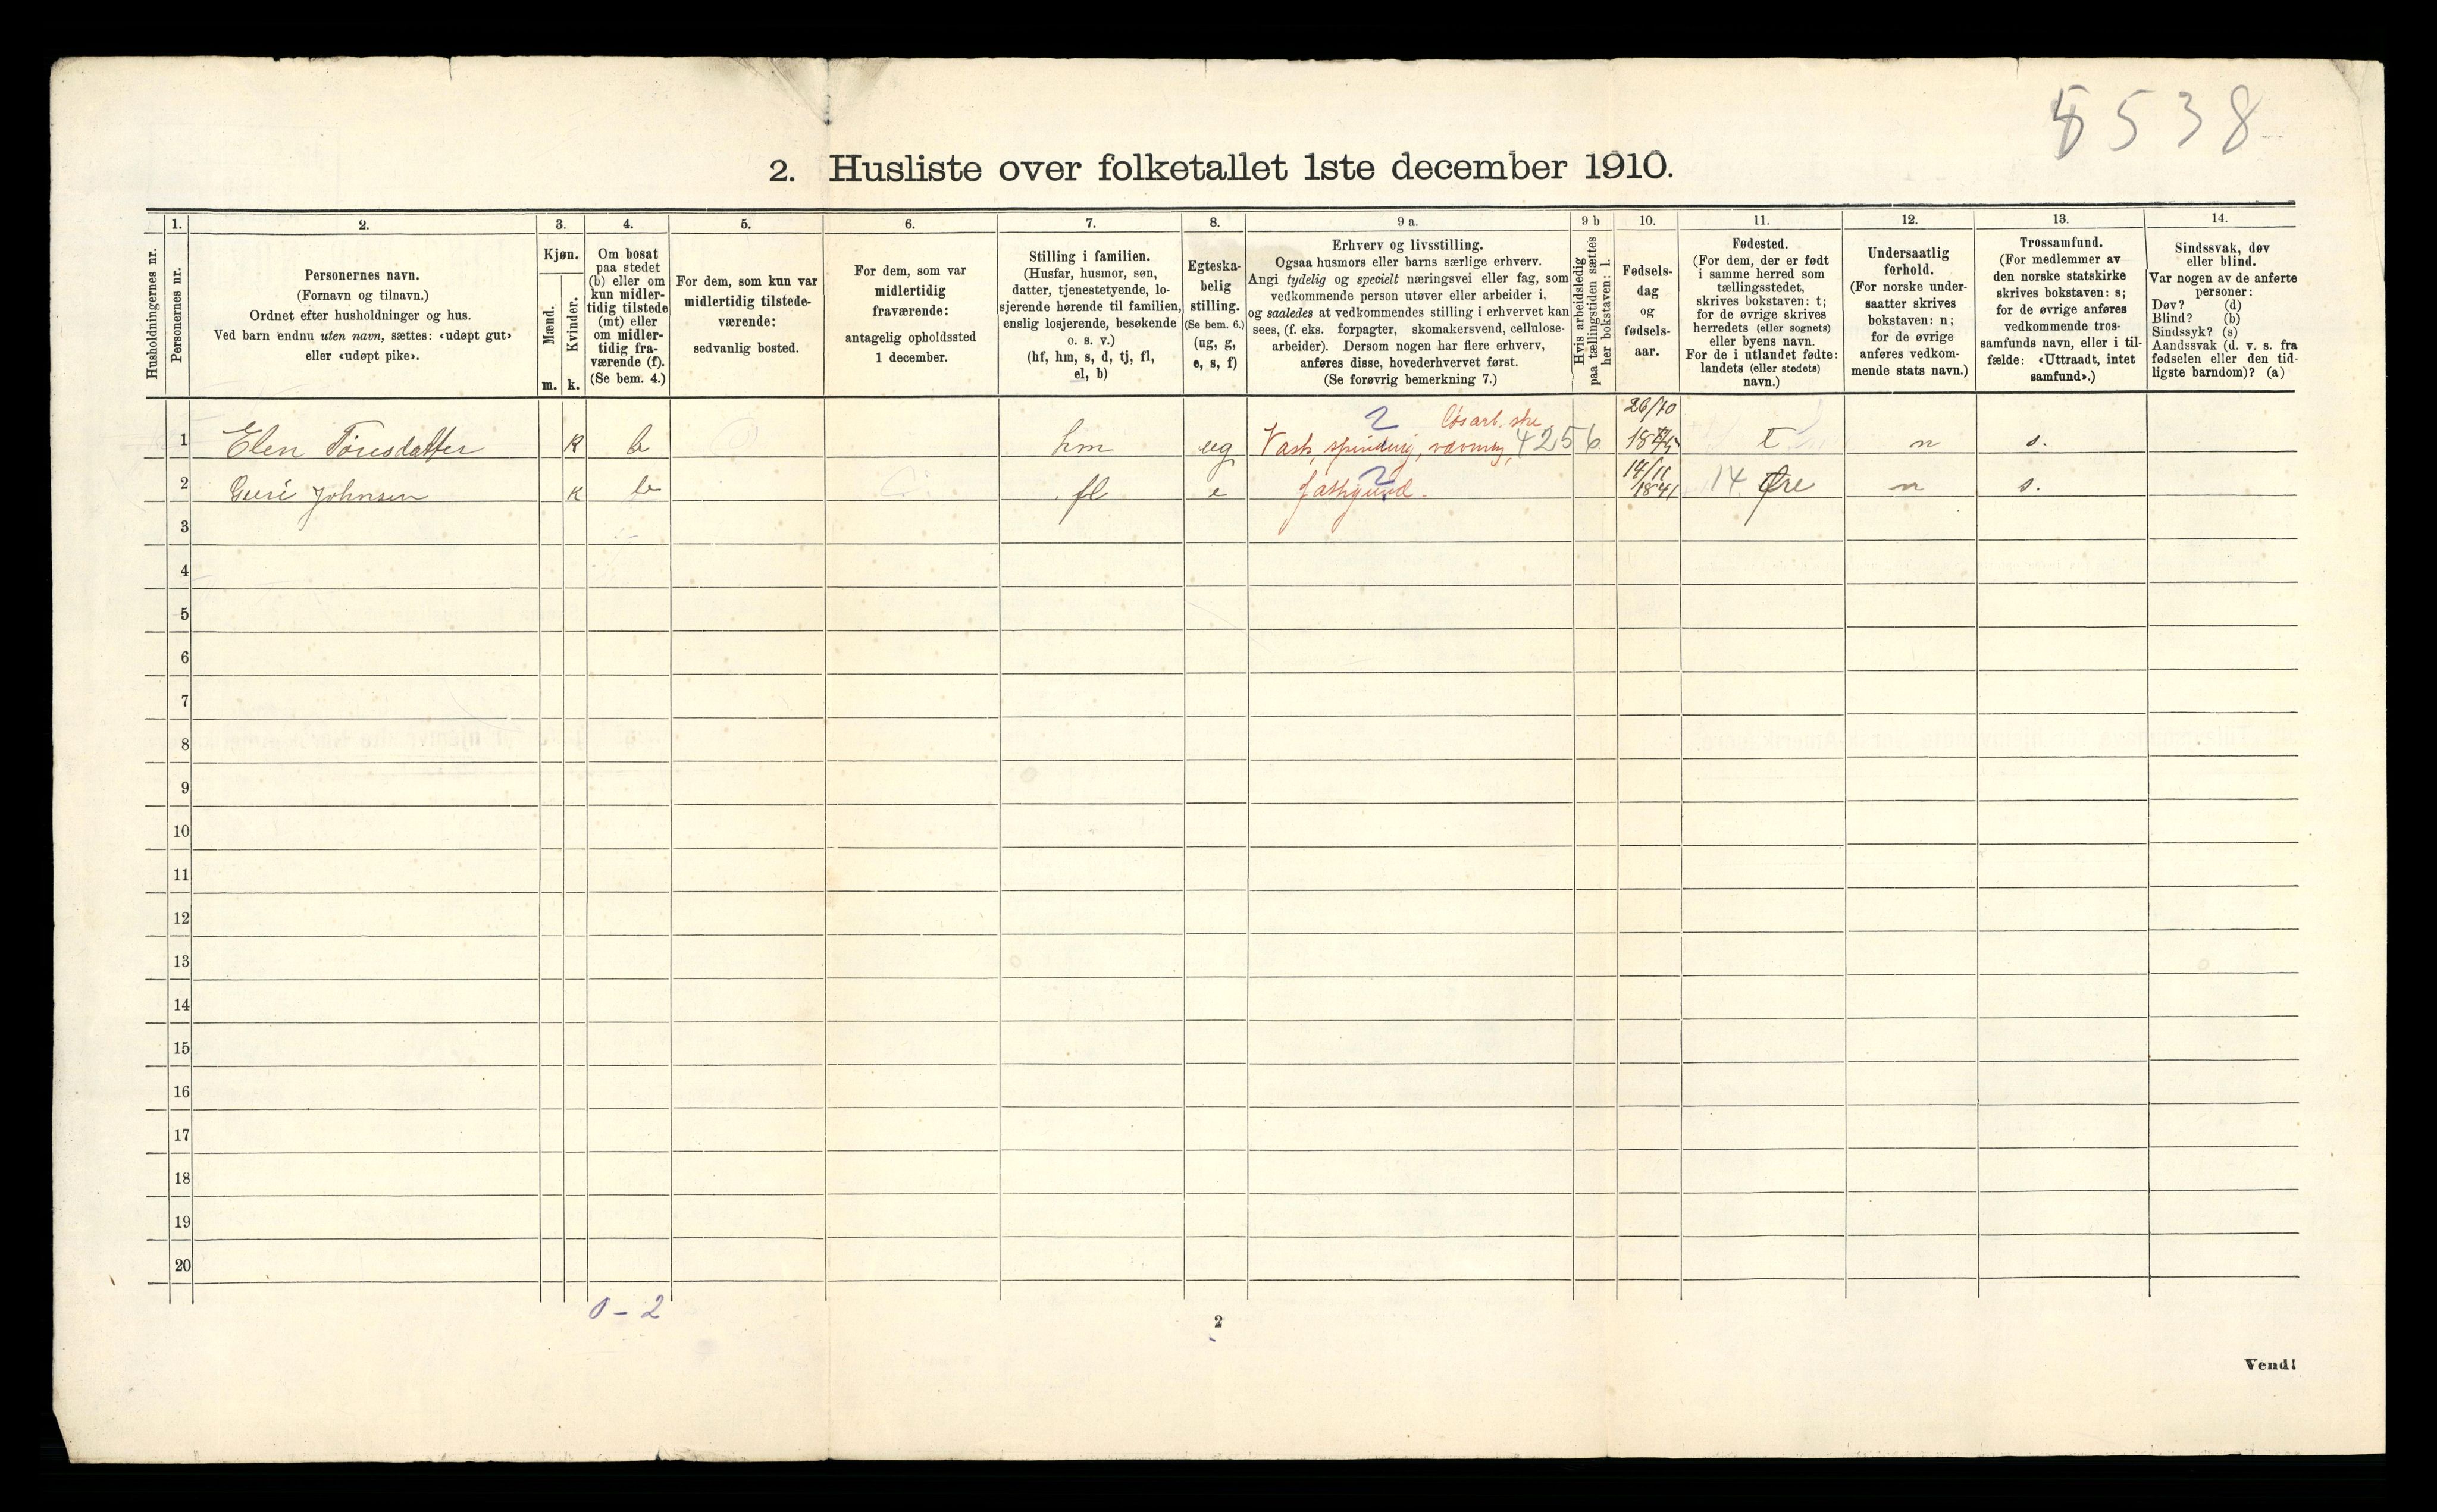 5538
2. Husliste over folketallet 1ste december 1910.
Husholdningernes nr.
1.
Personernes nr.
2.
Personernes navn.
(Fornavn og tilnavn.)
Ordnet efter husholdninger og hus.
Ved barn endnu uten navn, sættes: «udøpt gut»
eller «udøpt pike».
3.
Kjøn.
Mænd.
m.
Kvinder.
k.
4.
Om bosat
paa stedet
(b) eller om
kun midler-
tidig tilstede
(mt) eller
om midler-
tidig fra-
værende (f).
(Se bem. 4.)
5.
For dem, som kun var
midlertidig tilstede-
værende:
sedvanlig bosted.
6.
For dem, som var
midlertidig
fraværende:
antagelig opholdssted
1 december.
7.
Stilling i familien.
(Husfar, husmor, søn,
datter, tjenestetyende, lo-
sjerende hørende til familien,
enslig losjerende, besøkende
o. s. v.)
(hf, hm, s, d, tj, fl,
el, b)
8.
Egteska-
belig
stilling.
(Se bem. 6.)
(ug, g,
e, s, f)
9 a.
Erhverv og livsstilling.
Ogsaa husmors eller barns særlige erhverv.
Angi tydelig og specielt næringsvei eller fag, som
vedkommende person utøver eller arbeider i,
og saaledes at vedkommendes stilling i erhvervet kan
sees, (f. eks. forpagter, skomakersvend, cellulose-
arbeider). Dersom nogen har flere erhverv,
anføres disse, hovederhvervet først.
(Se forøvrig bemerkning 7.)
9 b
Hvis arbeidsledig
paa tællingstiden sættes
her bokstaven: l.
10.
Fødsels-
dag
og
fødsels-
aar.
11.
Fødested.
(For dem, der er født
i samme herred som
tællingsstedet,
skrives bokstaven: t;
for de øvrige skrives
herredets (eller sognets)
eller byens navn.
For de i utlandet fødte:
landets (eller stedets)
navn.)
12.
Undersaatlig
forhold.
(For norske under-
saatter skrives
bokstaven: n;
for de øvrige
anføres vedkom-
mende stats navn.)
13.
Trossamfund.
(For medlemmer av
den norske statskirke
skrives bokstaven: s;
for de øvrige anføres
vedkommende tros-
samfunds navn, eller i til-
fælde: «Uttraadt, intet
samfund».)
14.
Sindssvak, døv
eller blind.
Var nogen av de anførte
personer:
Døv? (d)
Blind? (b)
Sindssyk? (s)
Aandssvak (d. v. s. fra
fødselen eller den tid-
ligste barndom)? (a)
2 løsarb. 26/10
1 Elen Toresdatter k b hm ug Vask, spinding, vævning, 4256 t n s.
2 Guri Johnsen k b fl e 14/11 1841 14 Øre n s.
3
4
5
6
7
8
9
10
11
12
13
14
15
16
17
18
19
20
0 - 2
2
Vend!